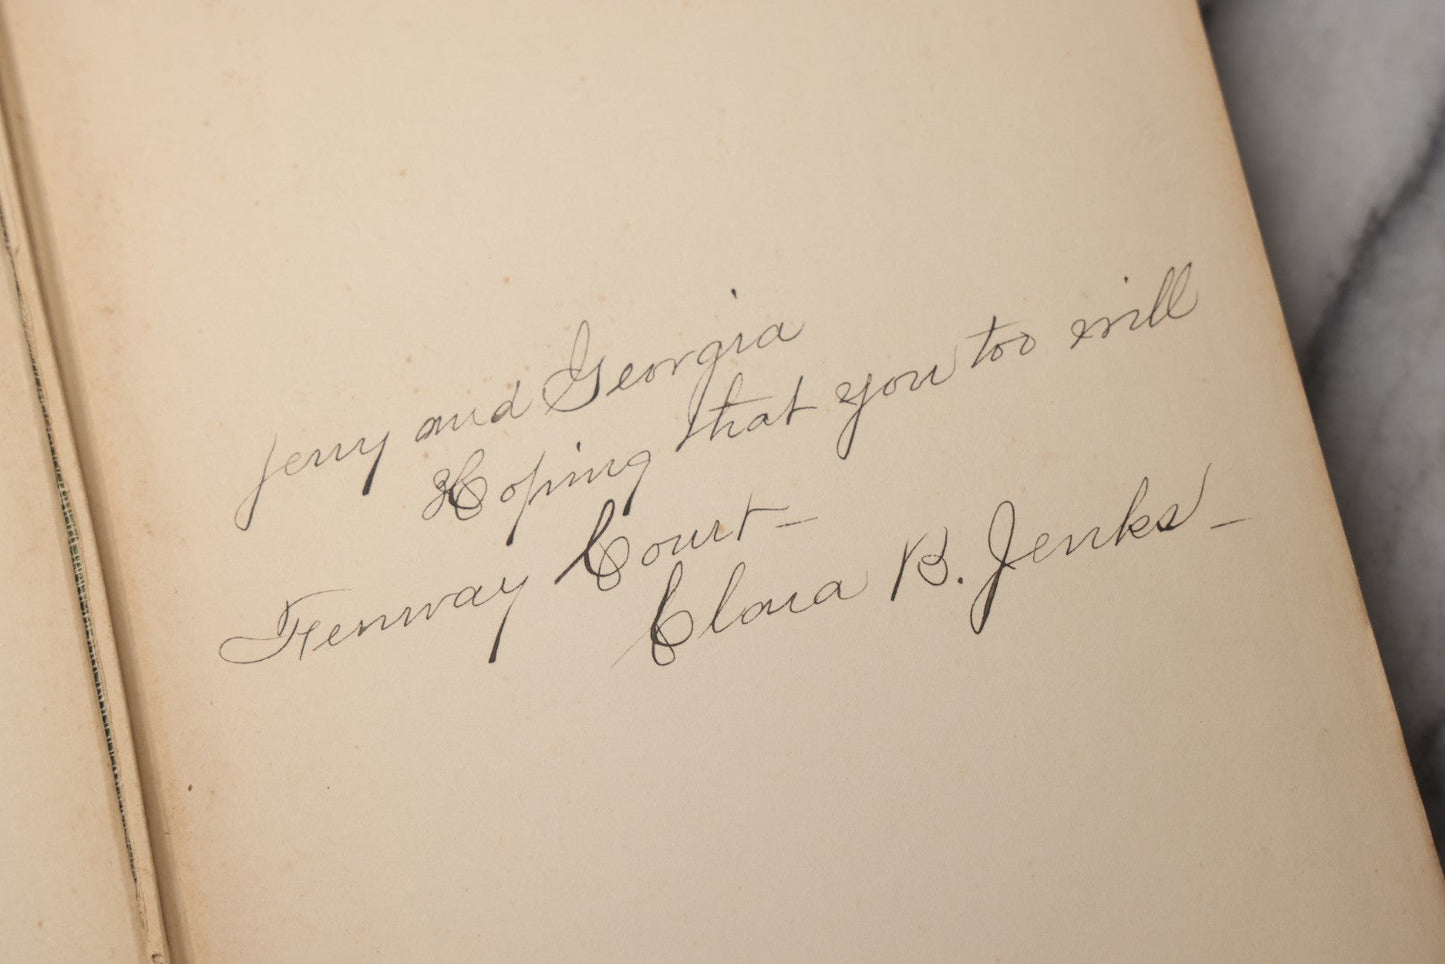 Jerry and Georgia
Hoping that you too will
Fenway Court –
Clara B. Jenks –